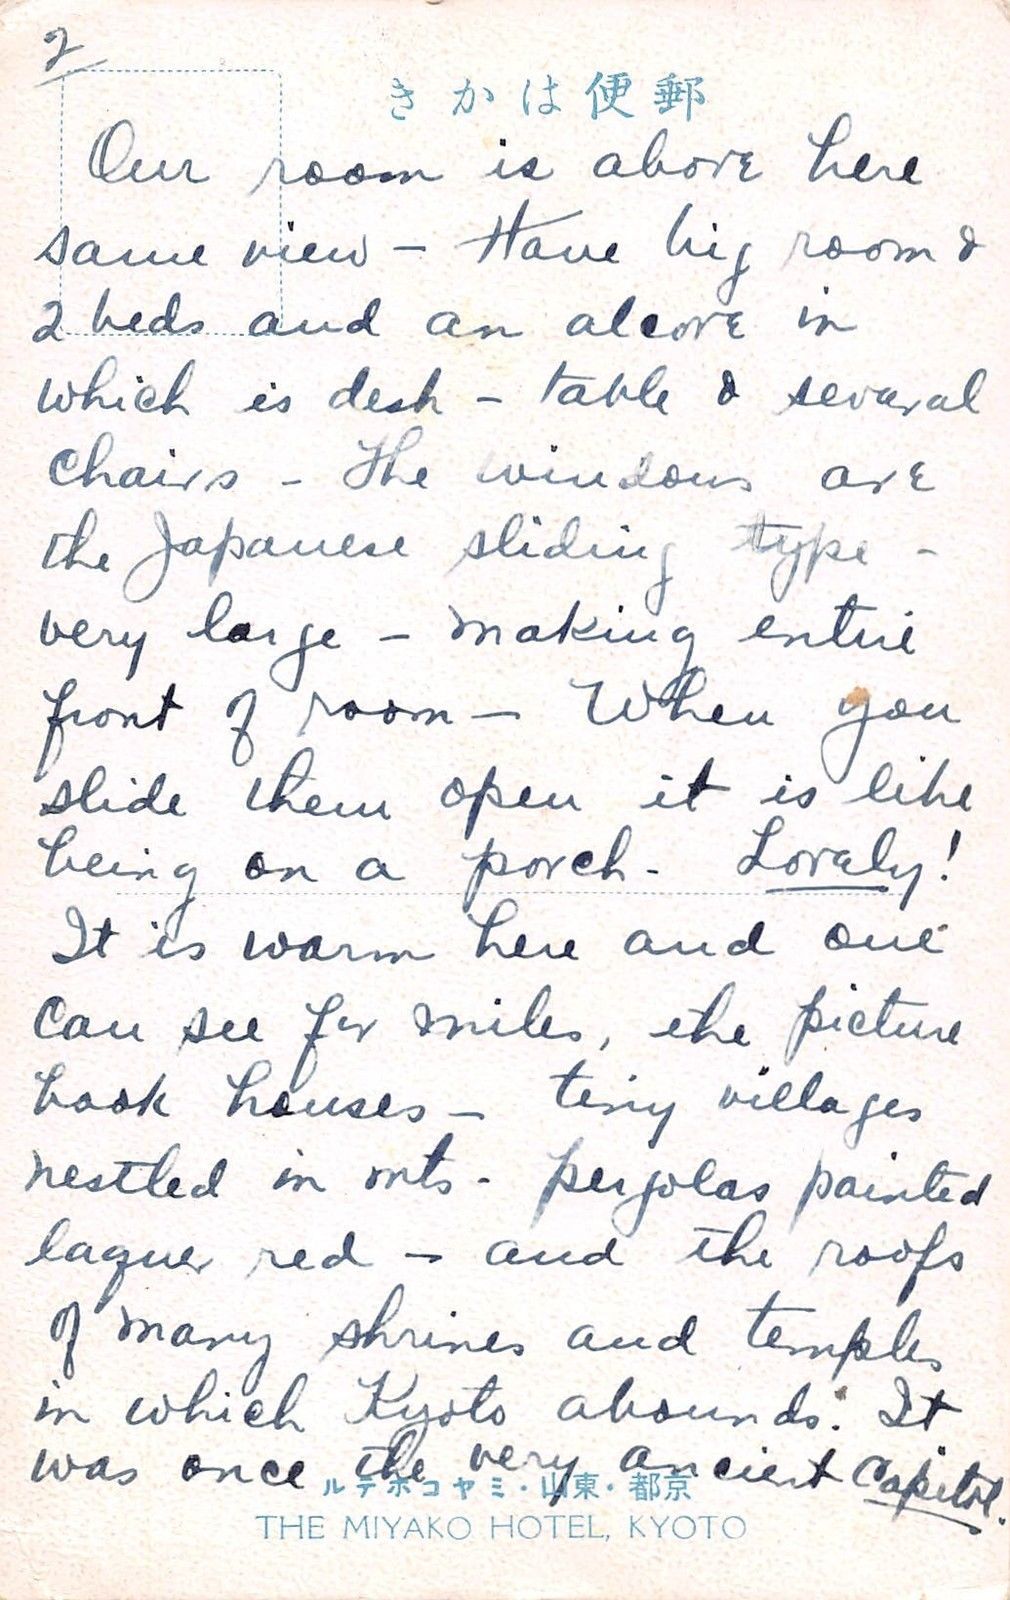 2
きかは便郵
Our room is above here
same view - Have big room &
2 beds and an alcove in
which is desk - table & several
chairs - The windows are
the Japanese sliding type -
very large - making entire
front of room - When you
slide them open it is like
being on a porch - Lovely!
It is warm here and one
can see for miles, the picture
book houses - tiny villages
nestled in mts - pergolas painted
laquer red - and the roofs
of many shrines and temples
in which Kyoto abounds. It
was once the very ancient capitol.
ルテホコヤミ・山東・都京
THE MIYAKO HOTEL, KYOTO